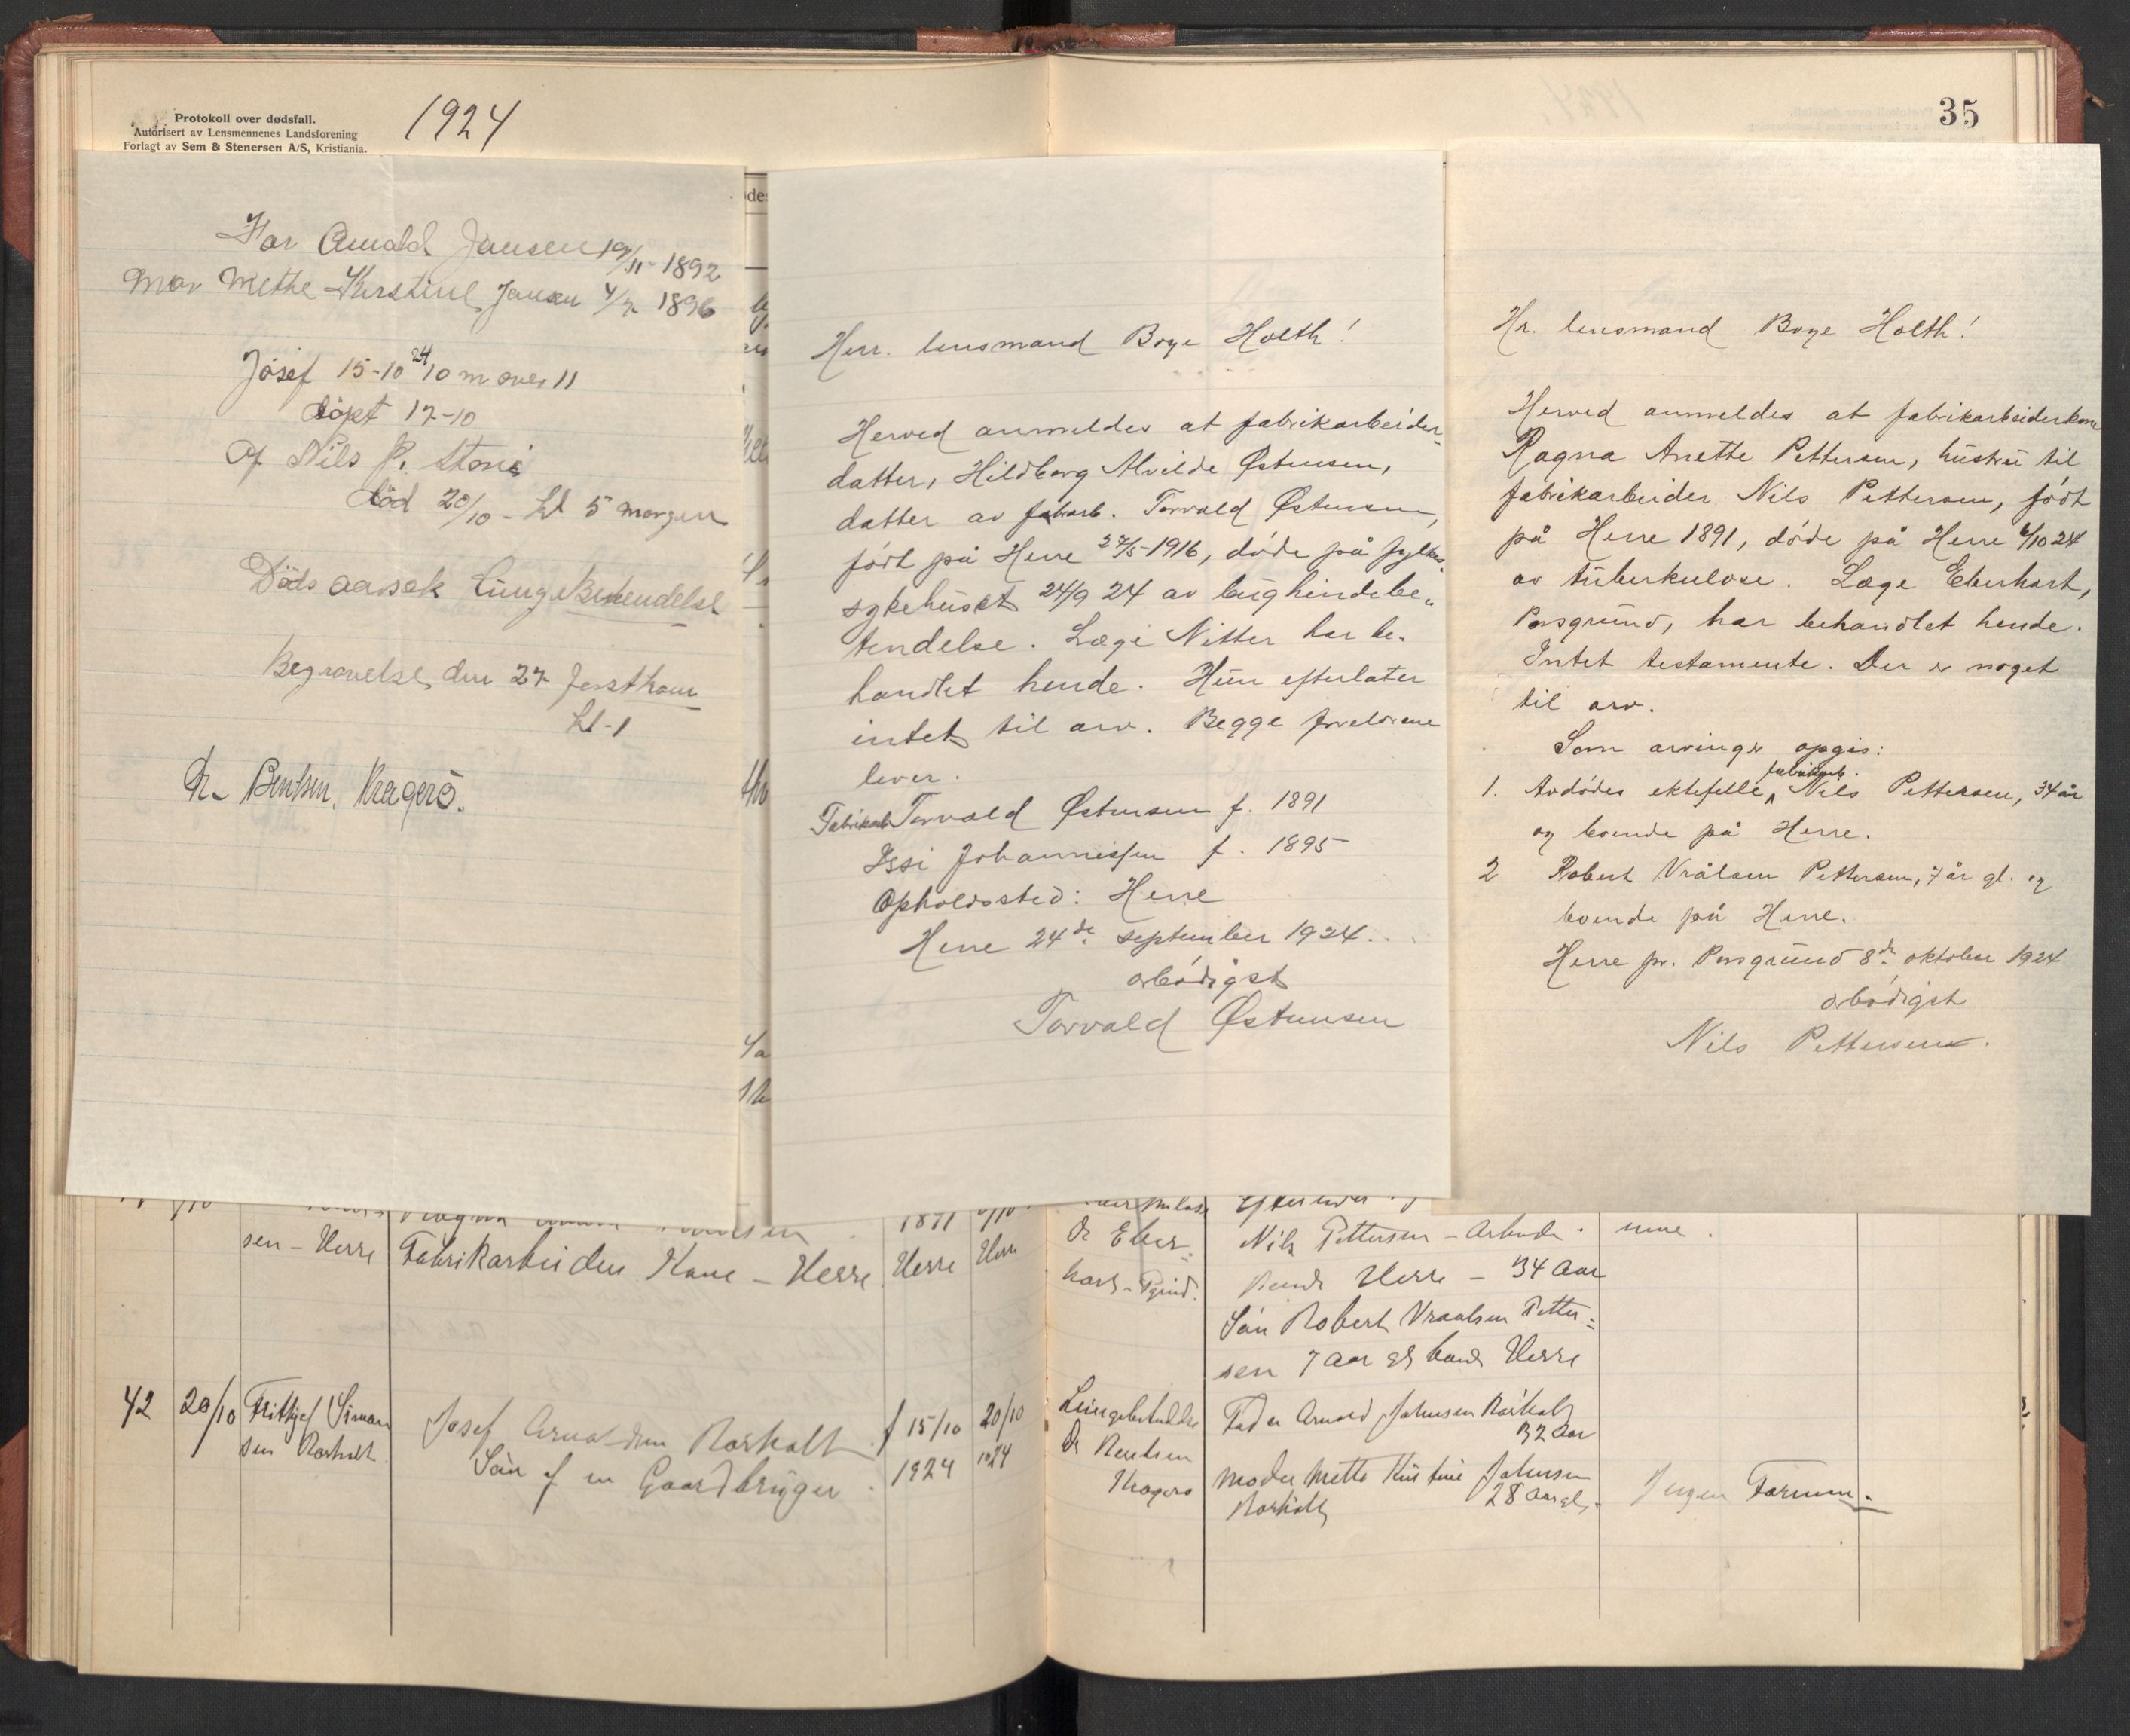 Protokoll over dødsfall.
Autorisert av Lensmennenes Landsforening
Forlagt av Sem & Stenersen A/S, Kristiania.
1924
35
Far Arnold Jansen 19/11-1892
Mor Methe Kirstine Jansen 4/7 1896
Jósef 15-10 24 10 m over 11
döpt 17-10
Af Nils P. Stoni
död 20/10 - kl 5 morgen
Döds aarsak Lunge Betendelse
Begravelse den 27
kl-1
Dr. Bentsen, Kragerö.
Herr. lensmand Boye Holth!
Herved anmeldes at fabrikarbeider-
datter, Hildborg Alvilde Østensen,
datter av fabarb. Torvald Østensen,
født på Herre 27/5-1916, døde på fylkes-
sykehuset 24/9 24 av bughindebe-
tendelse. Læge Nitter har be-
handlet hende. Hun efterlater
intet til arv. Begge forældrene
lever.
Fabrikarb Torvald Østensen f. 1891
Issi Johannessen f. 1895
Opholdssted: Herre
Herre 24de september 1924.
ærbødigst
Torvald Østensen
Hr. lensmand Boye Holth!
Herved anmeldes at fabrikarbeiderkone
Ragna Anette Pettersen, hustru til
fabrikarbeider Nils Pettersen, født
på Herre 1891, døde på Herre 6/10 24
av tuberkulose. Læge Eberhart,
Porsgrund, har behandlet hende.
Intet testamente. Der er noget
til arv.
Som arvinger opgis:
1. Avdødes ektefelle, fabrikarb. Nils Pettersen, 34 år
og boende på Herre.
2 Robert Vrålsen Pettersen, 7 år gl. og
boende på Herre.
Herre pr. Porsgrund 8de oktober 1924
ærbødigst
Nils Pettersen.
1891
sen - Herre Fabrikarbeider Kone - Herre Herre Herre Dr Eber- Nils Pettersen - Arbeide
hart - Pgrund. Herre - 34 Aar
Sön Robert Vraalsen Petter=
sen 7 Aar gl boende Herre
42 20/10 Frithjof Simon Josef Arnoldsen Rörholt f 15/10 20/10 Lungebetendelse Fader Arnold Johnsen Rörholt
sen Rörholt Sön af en Gaardbruger. 1924 1924 Dr Bentsen 32 Aar
Kragerö Moder Mette Kirstine Johnsen
28 Aar gl. Ingen Formue.
Rörholt